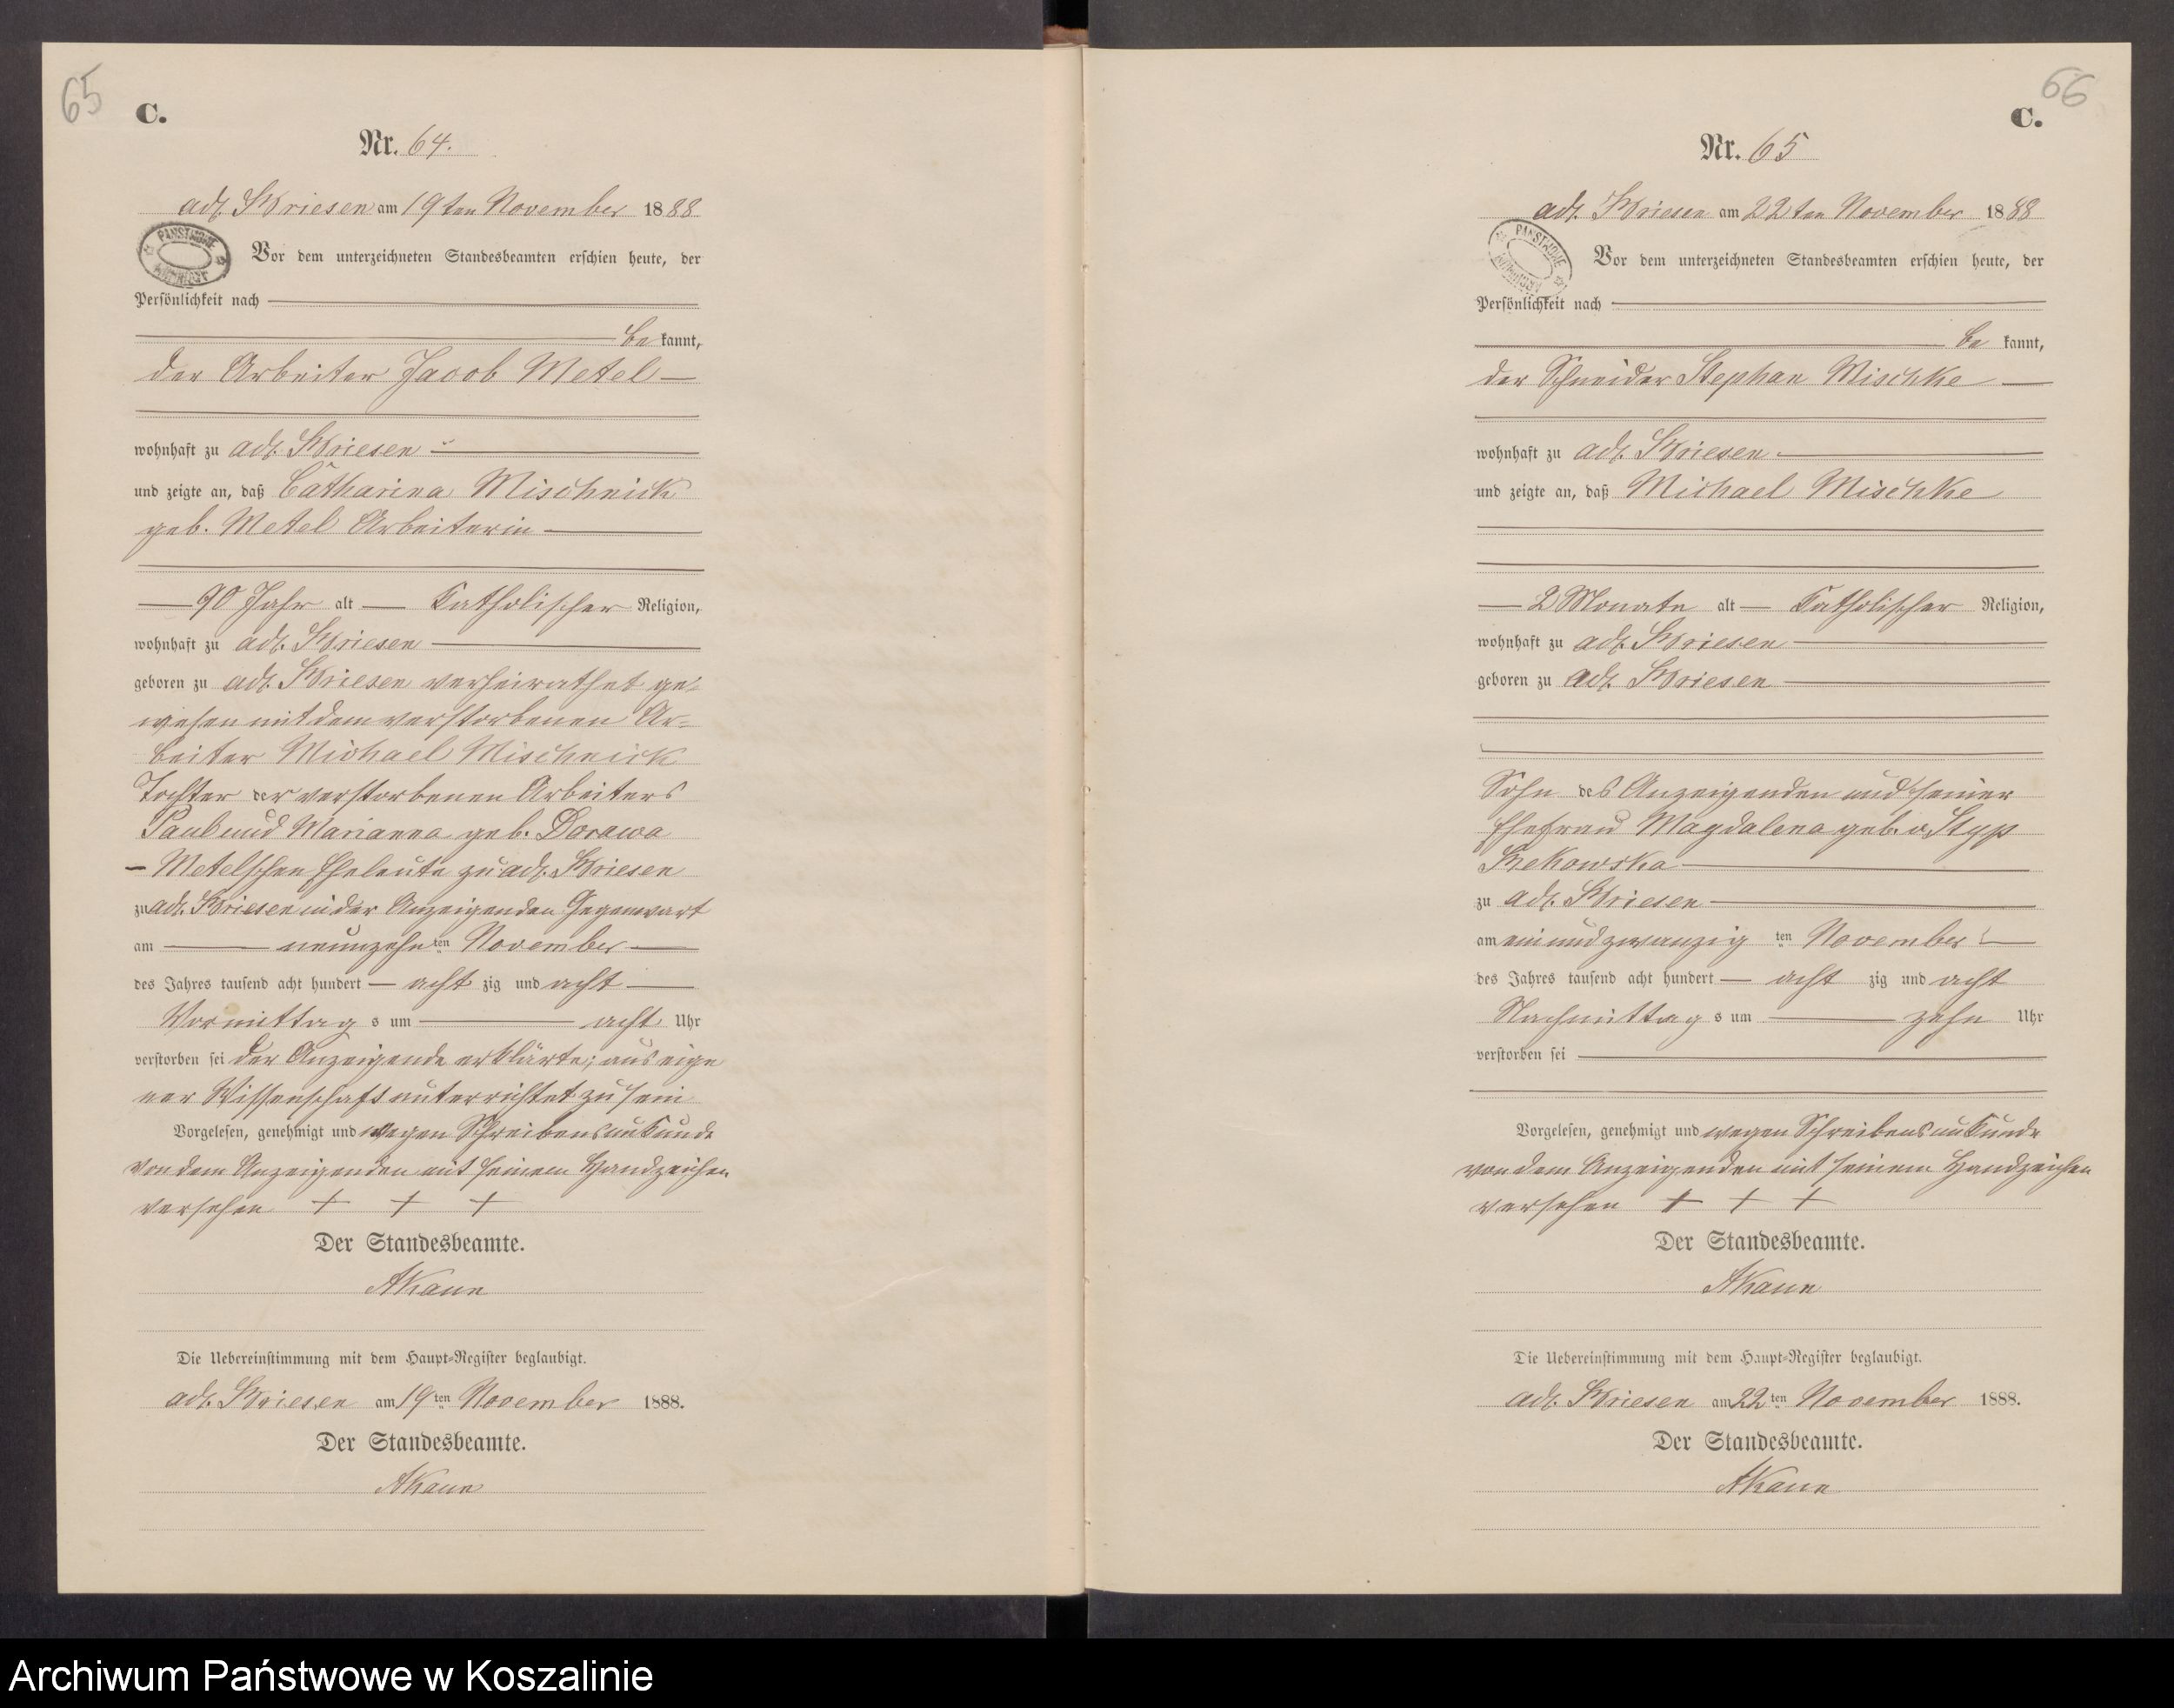 65
C.
Nr. 64.
adl. Briesen am 19ten November 1888
PANSTWOWE ARCHIWUM
Vor dem unterzeichneten Standesbeamten erschien heute, der
Persönlichkeit nach
be kannt,
der Arbeiter Jacob Metel
wohnhaft zu adl. Briesen
und zeigte an, daß Catharina Mischnick
geb. Metel Arbeiterin
90 Jahr alt Katholischer Religion,
wohnhaft zu adl. Briesen
geboren zu adl. Briesen verheirathet ge-
wesen mit dem verstorbenen Ar-
beiter Michael Mischnick
Tochter der verstorbenen Arbeiters
Paul und Marianna geb. Dorawa
Metelschen Eheleute zu adl. Briesen
zu adl. Briesen in der Anzeigenden Gegenwart
am neunzehnten November
des Jahres tausend acht hundert acht zig und acht
Vormittags um acht Uhr
verstorben sei der Anzeigende erklärte; aus eige
ner Wissenschaft unterrichtet zu sein
Vorgelesen, genehmigt und wegen Schreibensunkunde
von dem Anzeigenden mit seinem Handzeichen
versehen + + +
Der Standesbeamte.
AKaun
Die Uebereinstimmung mit dem Haupt-Register beglaubigt.
adl. Briesen am 19ten November 1888.
Der Standesbeamte.
AKaun
66
C.
Nr. 65
adl. Briesen am 22ten November 1888
PANSTWOWE ARCHIWUM
Vor dem unterzeichneten Standesbeamten erschien heute, der
Persönlichkeit nach
be kannt,
der Schneider Stephan Mischke
wohnhaft zu adl. Briesen
und zeigte an, daß Michael Mischke
2 Monate alt Katholischer Religion,
wohnhaft zu adl. Briesen
geboren zu adl. Briesen
Sohn des Anzeigenden und seiner
Ehefrau Magdalena geb. v. Styp
Rekowska
zu adl. Briesen
am einundzwanzig ten November
des Jahres tausend acht hundert acht zig und acht
Nachmittags um zehn Uhr
verstorben sei
Vorgelesen, genehmigt und wegen Schreibensunkunde
von dem Anzeigenden mit seinem Handzeichen
versehen + + +
Der Standesbeamte.
AKaun
Die Uebereinstimmung mit dem Haupt-Register beglaubigt.
adl. Briesen am 22ten November 1888.
Der Standesbeamte.
AKaun
Archiwum Państwowe w Koszalinie